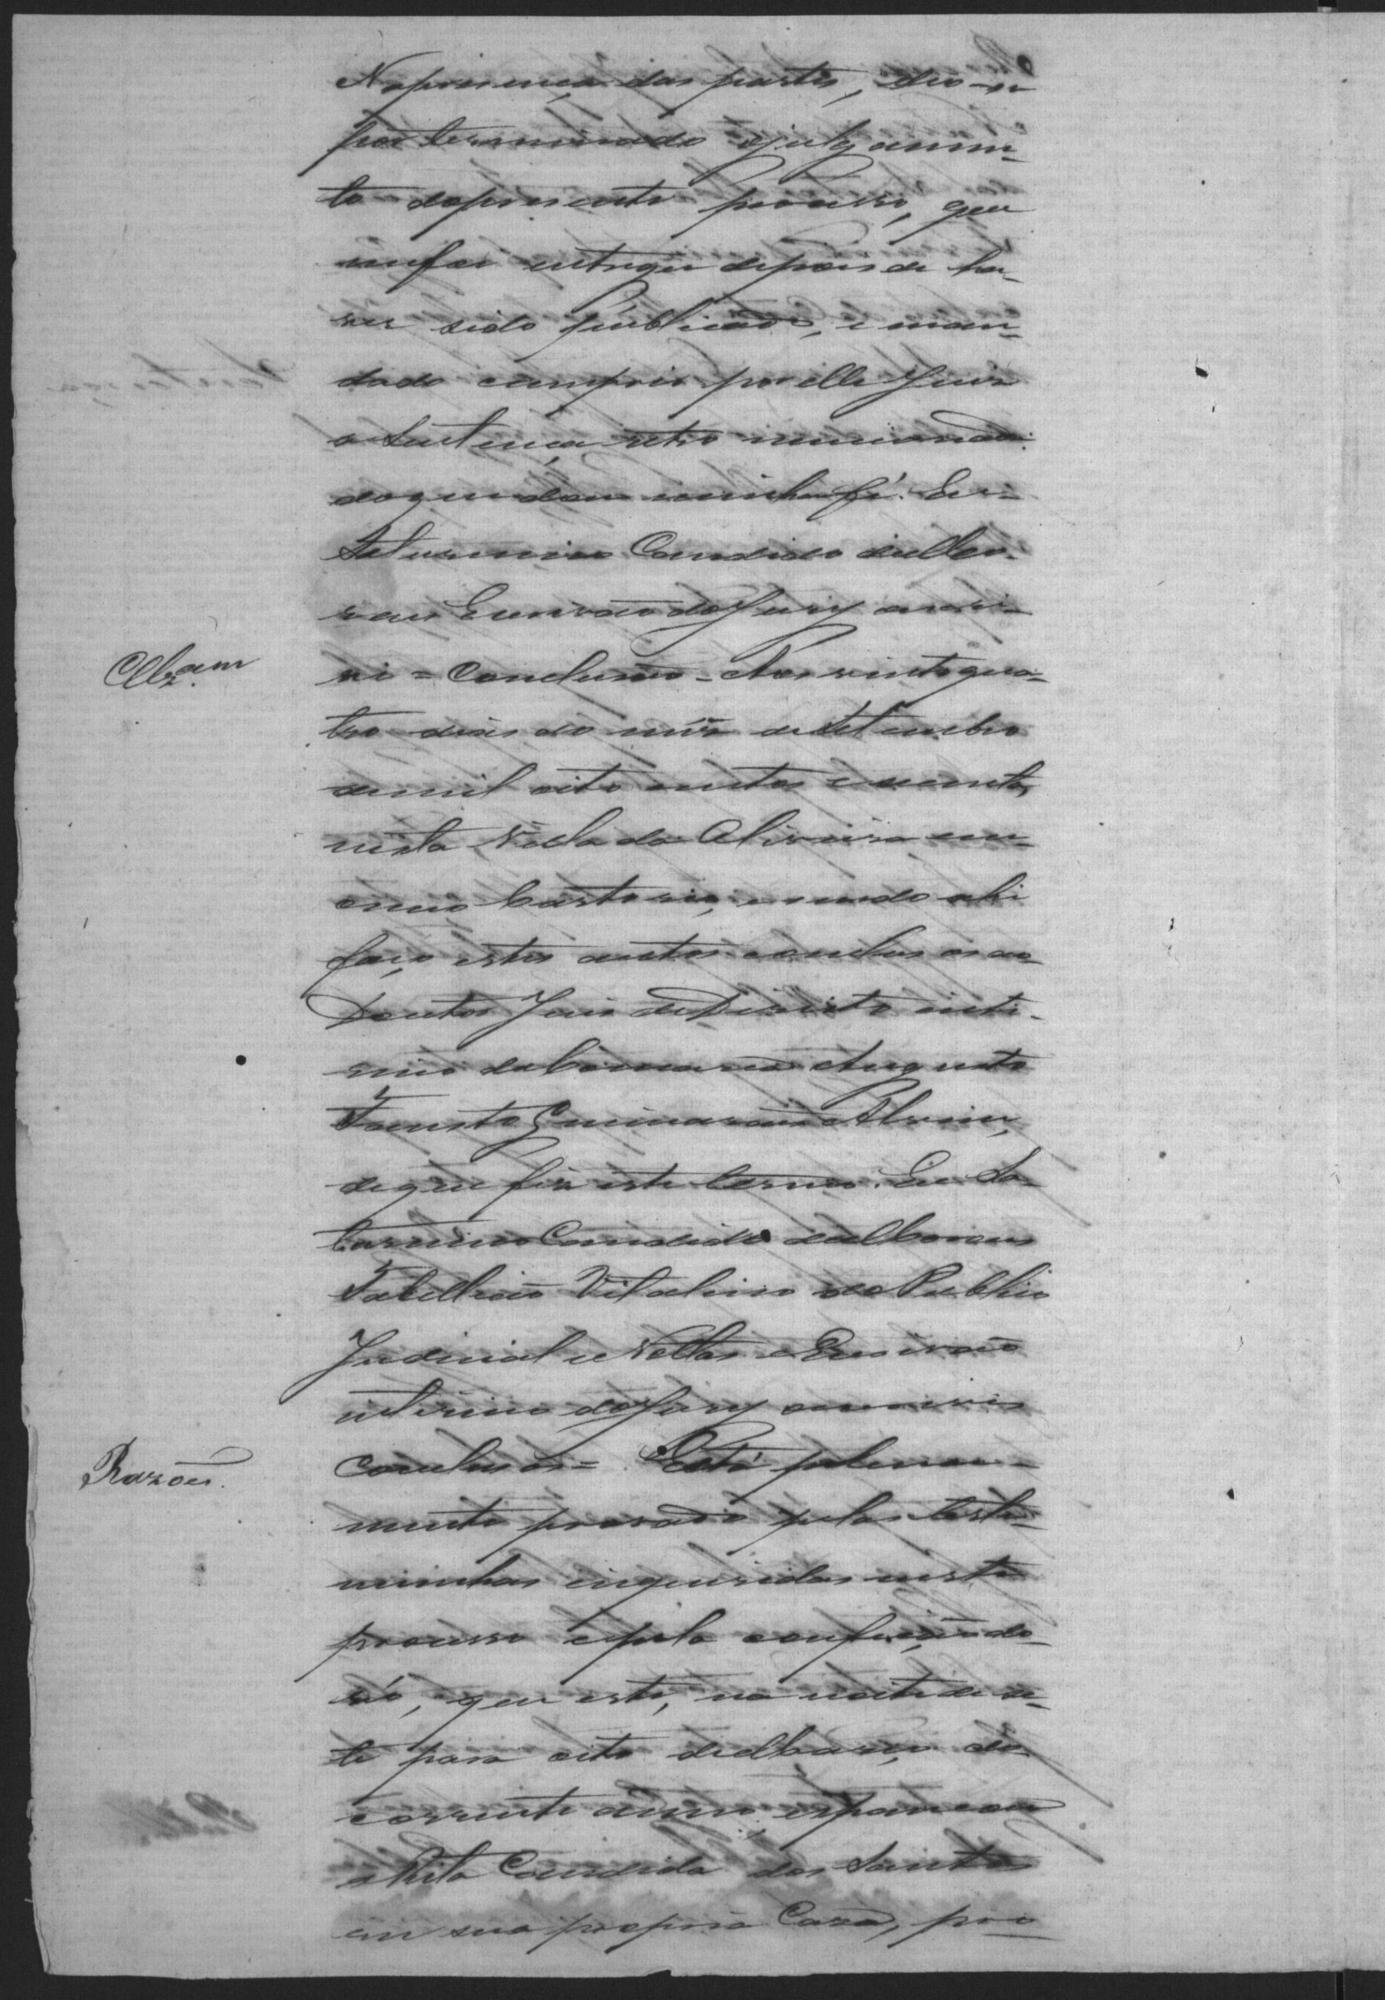 Na presença das partes, deo-se
por terminado o julgamen-
to do presente processo, que
me foi entregue depois de ha-
ver sido publicado, e man-
dado cumprir por elle Juiz
a Sentença retro mencionada:
do que dou minha fé. Eu
Saturnino Candido de Mo-
raes Escrivão do Jury escre-
vi = Conclusão - Aos vinte qua-
Clzam
tro dias do mêz de Setembro
de mil oito centos e oitenta,
nesta Villa da Oliveira em
o meu Cartorio, e sendo ahi
faço estes autos conclusos ao
Doutor Juiz de Direito inte-
rino da Comarca Augusto
Fausto Guimarães Alvim,
de que fiz este termo. Eu Sa-
turnino Candido de Moraes
Tabellião Vitalicio do Publico
Judicial e Nottas e Escrivão
interino do Jury o escrevi
Conclusos = Está plena-
Razões.
mente provado pelas teste-
munhas inqueridas neste
processo e pela confição do
réo, que este, na noite de se-
te para oito de Março do
corrente anno, espancou
a Rita Candida dos Santos
em sua propria Casa, pro-